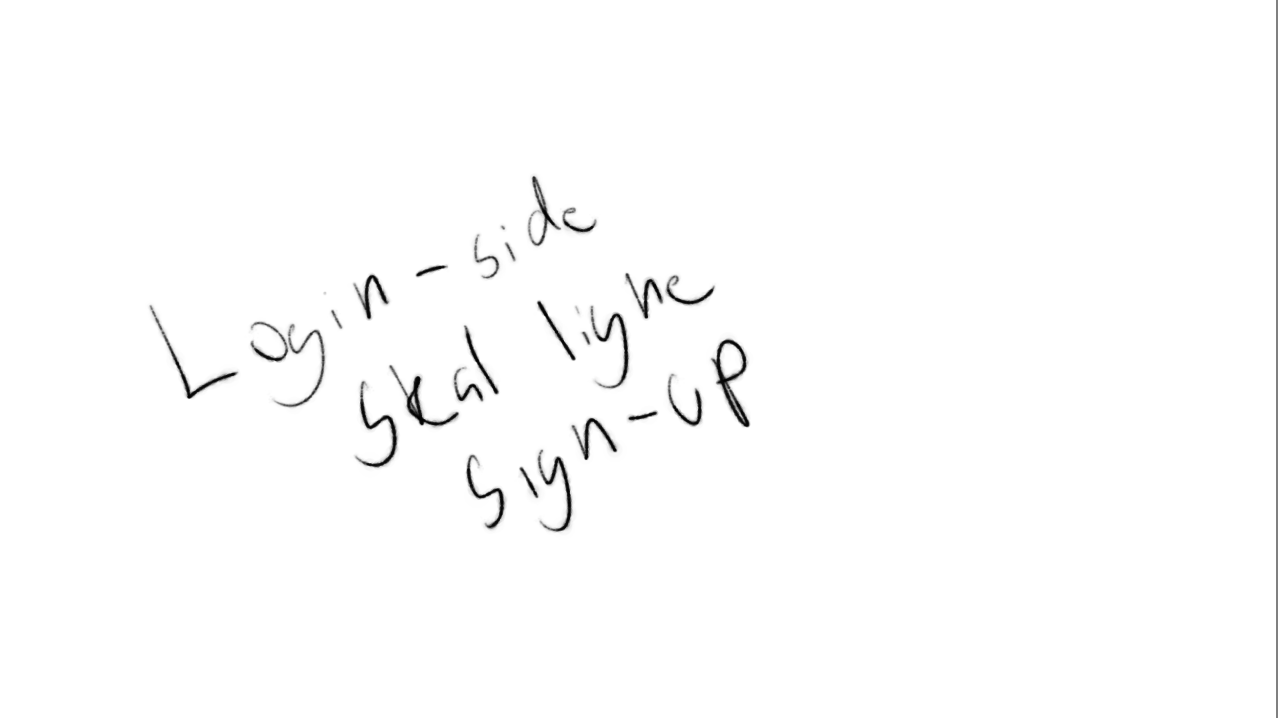 Login-side
skal ligne
sign-up